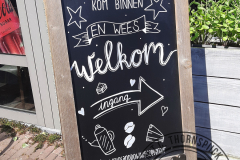 KOM BINNEN
EN WEES
welkom
ingang